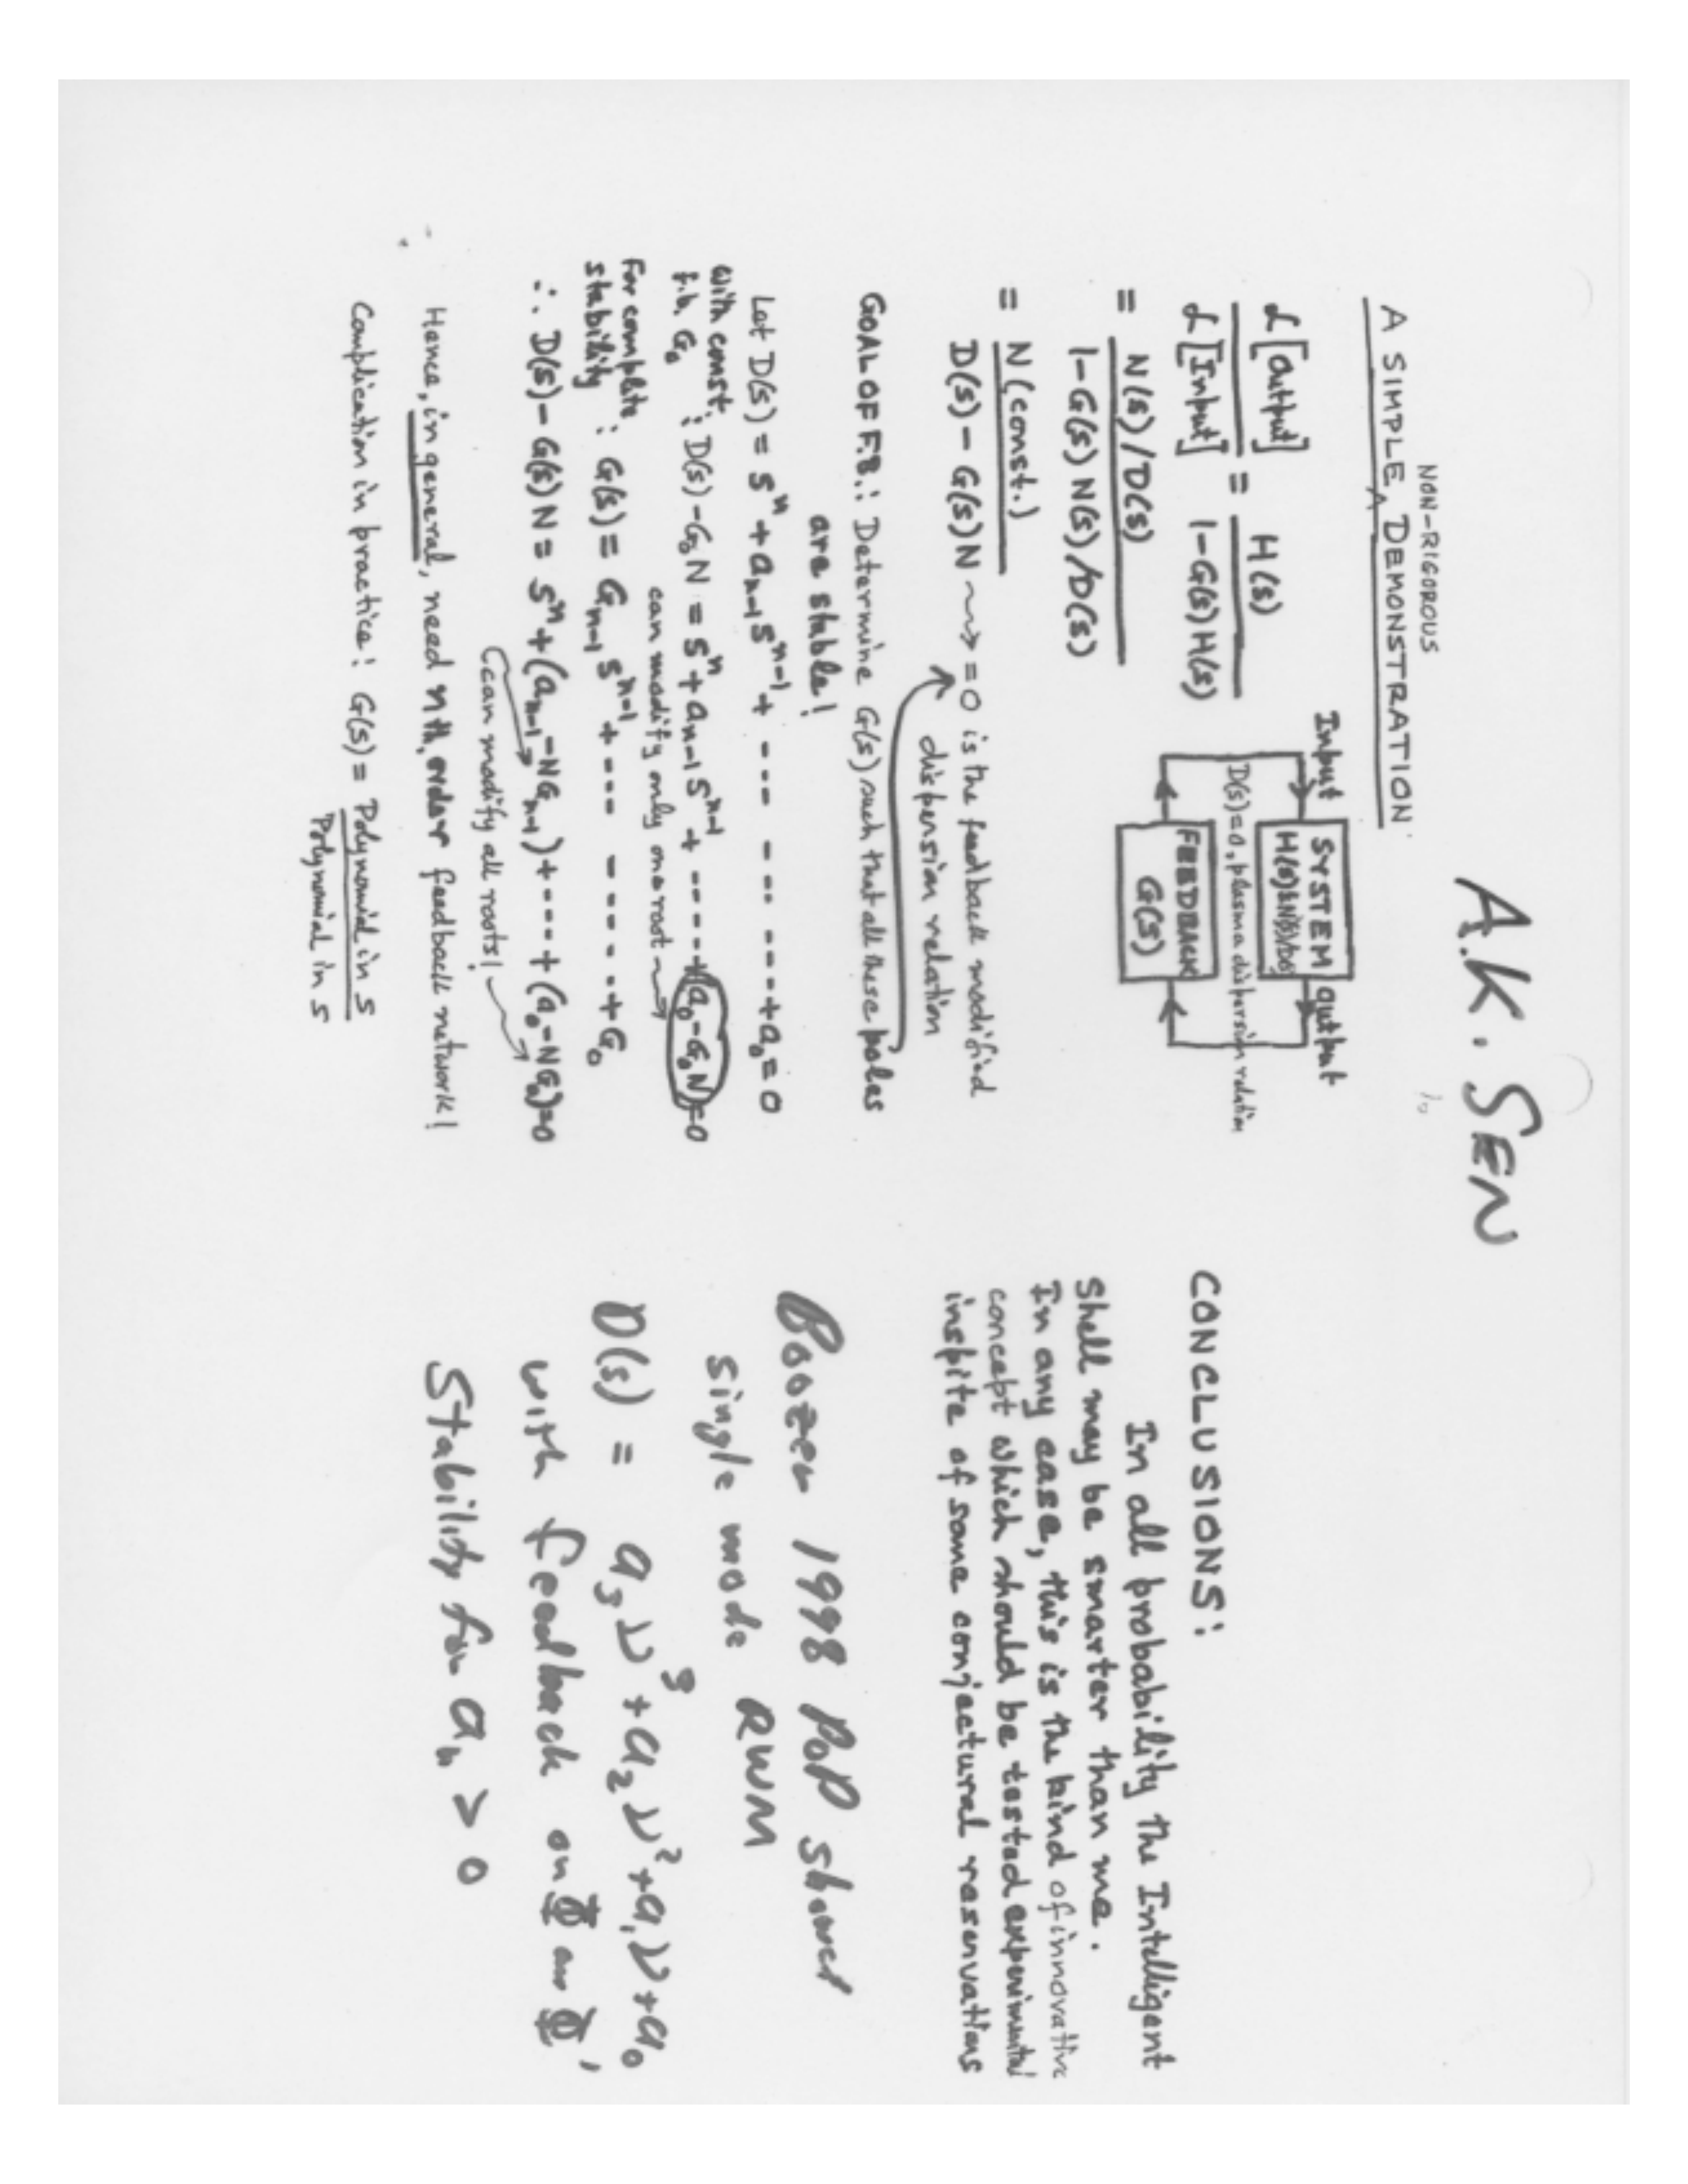 A.K. SEN
NON-RIGOROUS
A SIMPLE ^ DEMONSTRATION
ℒ[Output] / ℒ[Input] = H(s) / 1-G(s)H(s)
= N(s)/D(s) / 1-G(s)N(s)/D(s)
= N(const.) / D(s)-G(s)N ⇝ =0 is the feedback modified
dispersion relation
Input
SYSTEM
H(s)=N(s)/D(s)
output
D(s)=0, plasma dispersion relation
FEEDBACK
G(s)
GOAL OF F.B.: Determine G(s) such that all these poles
are stable!
Let D(s) = s^n + a_{n-1} s^{n-1} + --- --- --- + a_0 = 0
With const. f.b. G_0 : D(s)-G_0N = s^n + a_{n-1} s^{n-1} + ----- + (a_0-G_0N)=0
can modify only one root →
For complete stability : G(s) = G_{n-1} s^{n-1} + --- ----- + G_0
∴ D(s)-G(s)N = s^n + (a_{n-1}-NG_{n-1}) + ---- + (a_0-NG_0)=0
can modify all roots!
Hence, in general, need nth order feedback network!
Complication in practice: G(s) = Polynomial in s / Polynomial in s
CONCLUSIONS:
In all probability the Intelligent
Shell may be smarter than me.
In any case, this is the kind of innovative
concept which should be tested experimental
inspite of some conjectural reservations
Boozer 1998 PoP shows
single mode RWM
D(s) = a_3 ν^3 + a_2 ν^2 + a_1 ν + a_0
with feedback on Φ an Φ̇,
Stability for a_n > 0